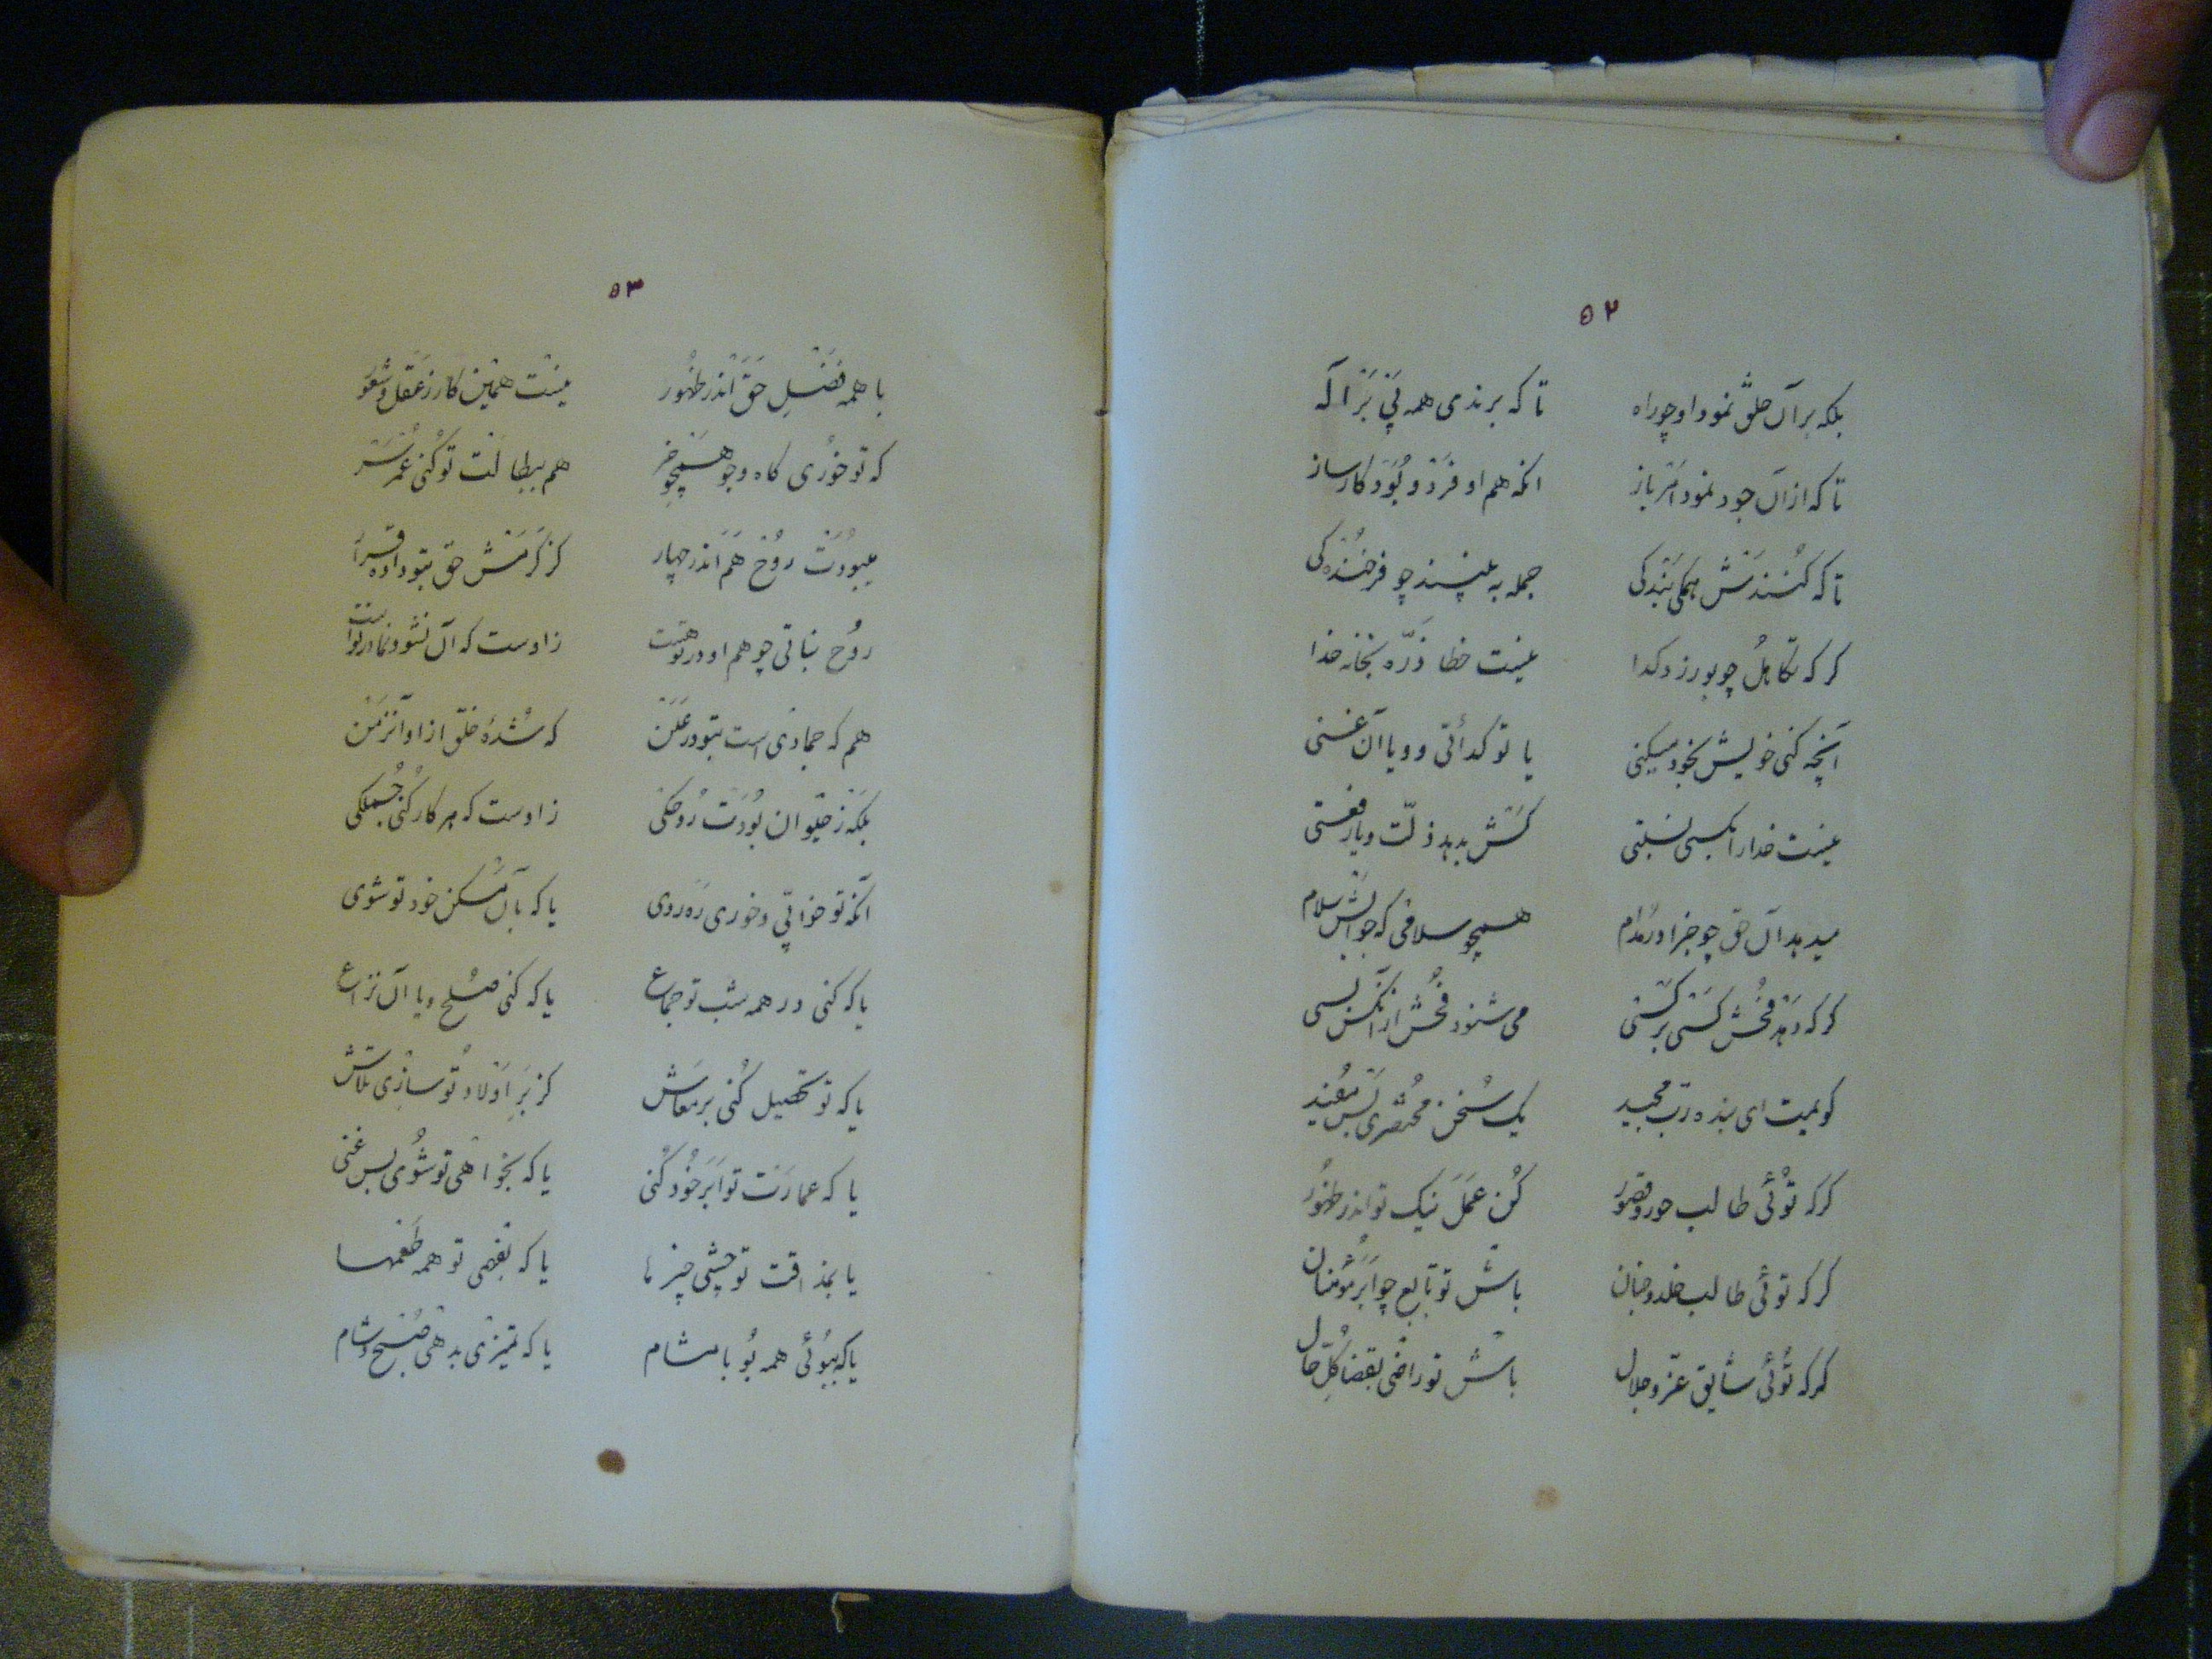 ۵۲
بلکه برآن خلق نمود او چو راه تا که برندی همه پی بر اله
تا که از آن جود نمود امر باز انکه هم او فرد و بود کارساز
تا که کنندش همگی بندگی جمله به بینند چو فرخندگی
گر که تکاهل چو بورزد گدا نیست خطا ذره بخانه خدا
آنچه کنی خویش بخود میکنی یا تو گدائی و ویا آن غنی
نیست خدا را بکسی نسبتی کش بدهد ذلت و یا رفعتی
میدهد آن حق چو جزا در مدام همچو سلامی که جوابش سلام
گر که دهد فحش کسی بر کسی می شنود فحش از آنکس بسی
گویمت ای بنده رب مجید یک سخن مختصری بس مفید
گر که توئی طالب حور و قصور کن عمل نیک تو اندر ظهور
گر که توئی طالب خلد و جنان باش تو تابع چو ابر مؤمنان
گر که توئی شایق عز و جلال باش تو راضی بقضا کل حال
۵۳
با همه فضل حق اندر ظهور نیست همین کار ز عقل و شعور
که تو خوری کاه و جو همچو خر هم ببطالت تو کنی عمر سر
بودت روح هم اندر چهار کز کرمش حق بتو داده قرار
روح نباتی چو هم او در تو هست ز اوست که آن نشو و نما در تو است
هم که جمادی است بتو در علن که شده خلق از او آن زمن
بلکه ز حیوان بودت روحکی ز اوست که هر کار کنی جملگی
انکه تو خوابی و خوری ره روی یا که بآن مسکن خود تو شوی
یا که کنی در همه شب تو جماع یا که کنی صلح و یا آن نزاع
یا که تو تحصیل کنی بر معاش کز بر اولاد تو سازی تلاش
یا که عمارت تو ابر خود کنی یا که بخواهی تو شوی بس غنی
یا بمذاقت تو چشی چیزها یا که بفهمی تو همه طعمها
یا که ببوئی همه بو با مشام یا که تمیزی بدهی صبح و شام